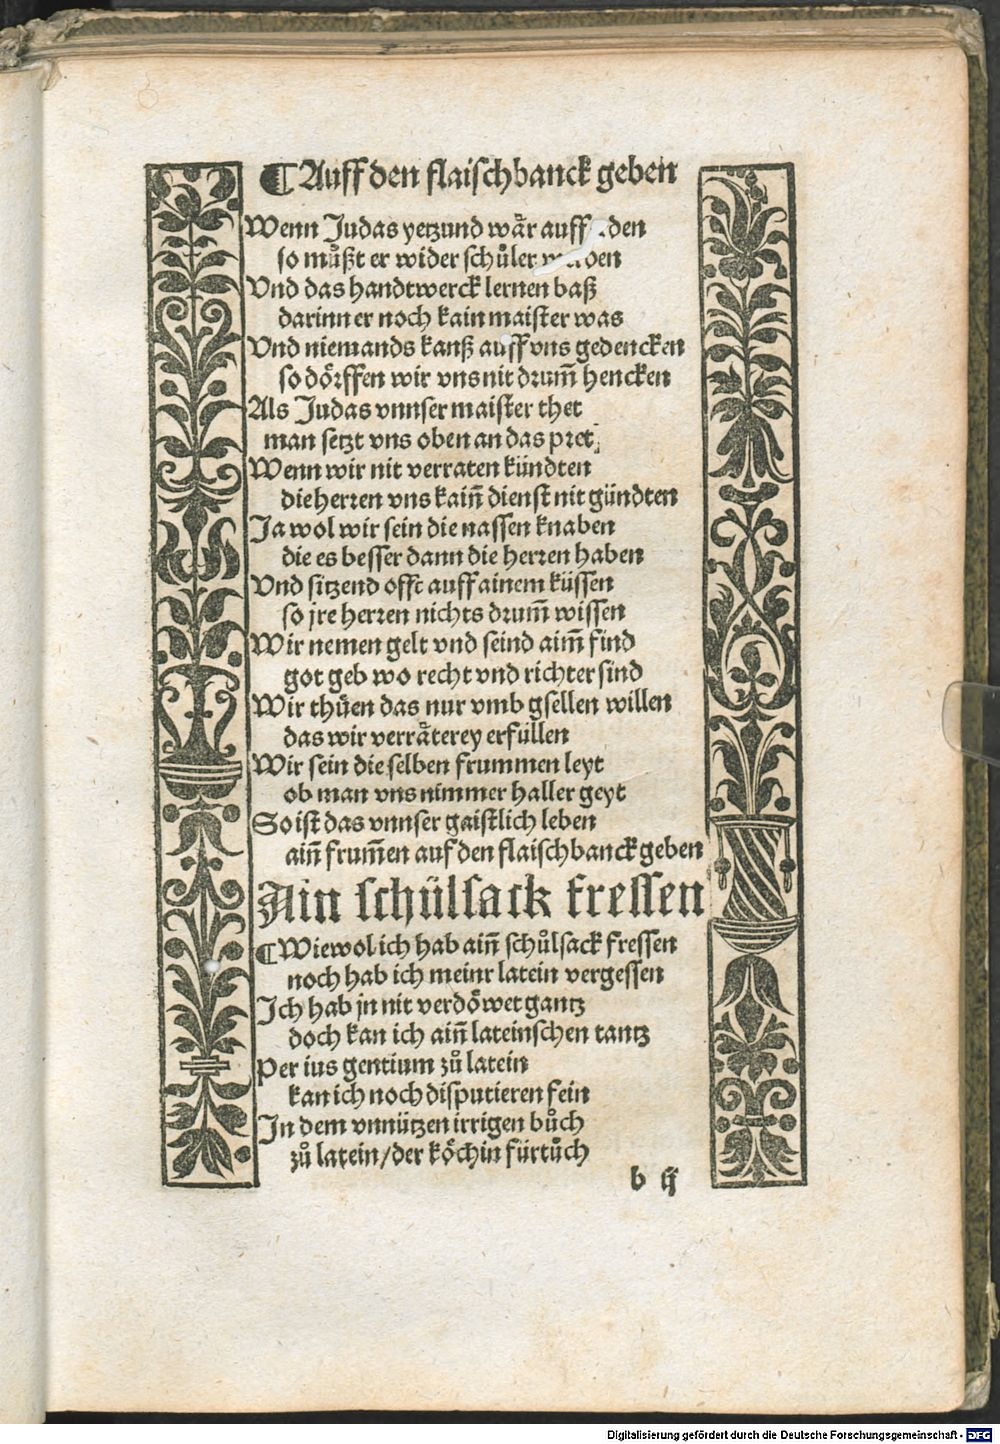 ¶ Auff den flaischbanck geben
Wenn Judas yetzund wår auff .den
so můßt er wider schůler werden
Vnd das handtwerck lernen baß
darinn er noch kain maister was
Vnd niemands kanß auff vns gedencken
so dörffen wir vns nit drum̃ hencken
Als Judas vnnser maister thet
man setzt vns oben an das pret
Wenn wir nit verraten kündten
die herren vns kain̄ dienst nit gündten
Ja wol wir sein die nassen knaben
die es besser dann die herren haben
Vnd sitzend offt auff ainem küssen
so jre herren nichts drum̃ wissen
Wir nemen gelt vnd seind aim̃ find
got geb wo recht vnd richter sind
Wir thůen das nur vmb gsellen willen
das wir verråterey erfüllen
Wir sein die selben frummen leyt
ob man vns nimmer haller geyt
So ist das vnnser gaistlich leben
ain̄ frum̃en auf den flaischbanck geben
Ain schůlsack fressen
¶ Wiewol ich hab ain̄ schůlsack fressen
noch hab ich meinr latein vergessen
Ich hab jn nit verdöwet gantz
doch kan ich ain̄ lateinschen tantz
Per ius gentium zů latein
kan ich noch disputieren fein
In dem vnnützen irrigen bůch
zů latein/der köchin fürtůch
b ij
Digitalisierung gefördert durch die Deutsche Forschungsgemeinschaft - DFG